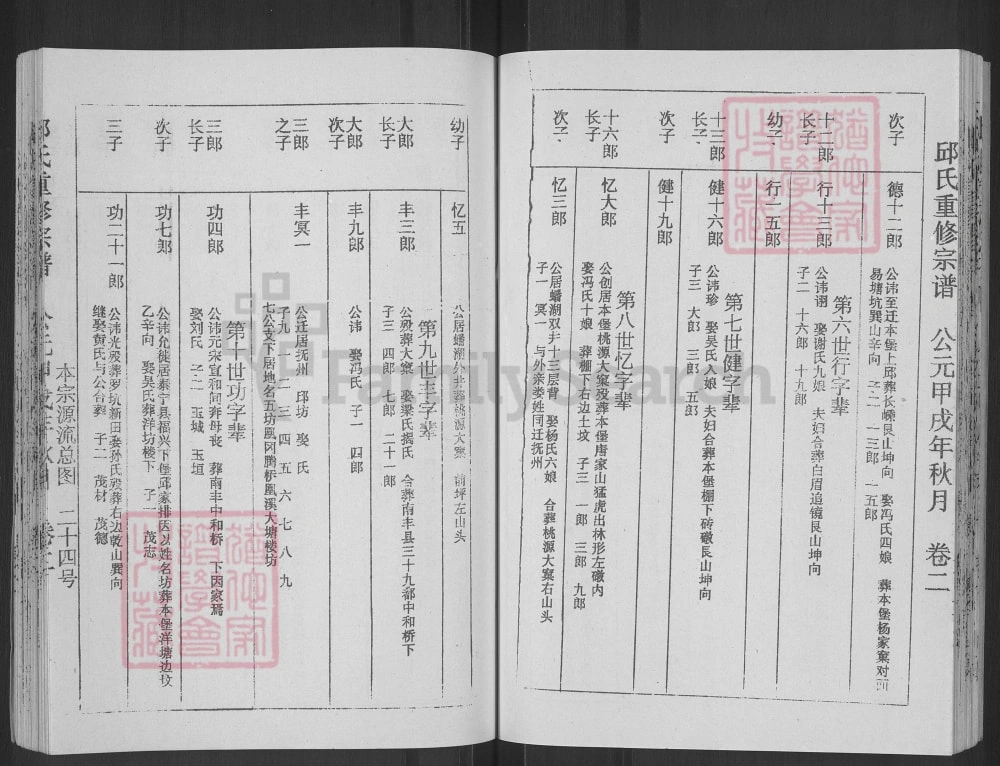 邱氏重修宗谱 公元甲戌年秋月 卷二
次子 德十二郎
公讳至迁本堡上邱葬长嵊艮山坤向 娶冯氏四娘 葬本堡杨家窠对面
易塘坑巽山辛向 子二 一三郎 一五郎
第六世行字辈
十二郎长子 行十三郎
公讳诩 娶谢氏九娘 夫妇合葬白眉追镜艮山坤向
子二 十六郎 十九郎
幼子 行一五郎
第七世健字辈
十三郎长子 健十六郎
公讳珍 娶吴氏八娘 夫妇合葬本堡棚下砖礅艮山坤向
子三 大郎 三郎 五郎
次子 健十九郎
第八世忆字辈
十六郎长子 忆大郎
公创居本堡桃源大窠殁葬本堡唐家山猛虎出林形左礅内
娶冯氏十娘 葬棚下右边土坟 子三 一郎 三郎 九郎
次子 忆三郎
公居蟠湖双井十三层背 娶杨氏六娘 合葬桃源大窠右山头
子一 冥一 与外亲娄姓同迁抚州
幼子 忆五
公居蟠湖外井葬桃源大窠 前坪左山头
第九世丰字辈
大郎长子 丰三郎
公殁葬大窠 娶梁氏揭氏 合葬南丰县三十九都中和桥下
子三 四郎 七郎 二十一郎
大郎次子 丰九郎
公讳 娶冯氏 子一 四郎
三郎之子 丰冥一
公迁居抚州 邱坊 娶 氏
子九 一 二 三 四 五 六 七 八 九
七公支下居地名五坊凰冈腾桥凰溪大塘楼坊
第十世功字辈
三郎长子 功四郎
公讳元宋宣和间奔母丧 葬南丰中和桥 下因家焉
娶刘氏 子二 玉城 玉垣
次子 功七郎
公讳允徙居泰宁县福兴下堡邱家排因以姓名坊葬本堡洋塘边坟
乙辛向 娶吴氏葬洋坊楼下 子一 茂志
三子 功二十一郎
公讳光殁葬罗坑新田娶孙氏殁葬右边乾山巽向
继娶黄氏与公合葬 子二 茂材 茂德
本宗源流总图 二十四号
FamilySearch